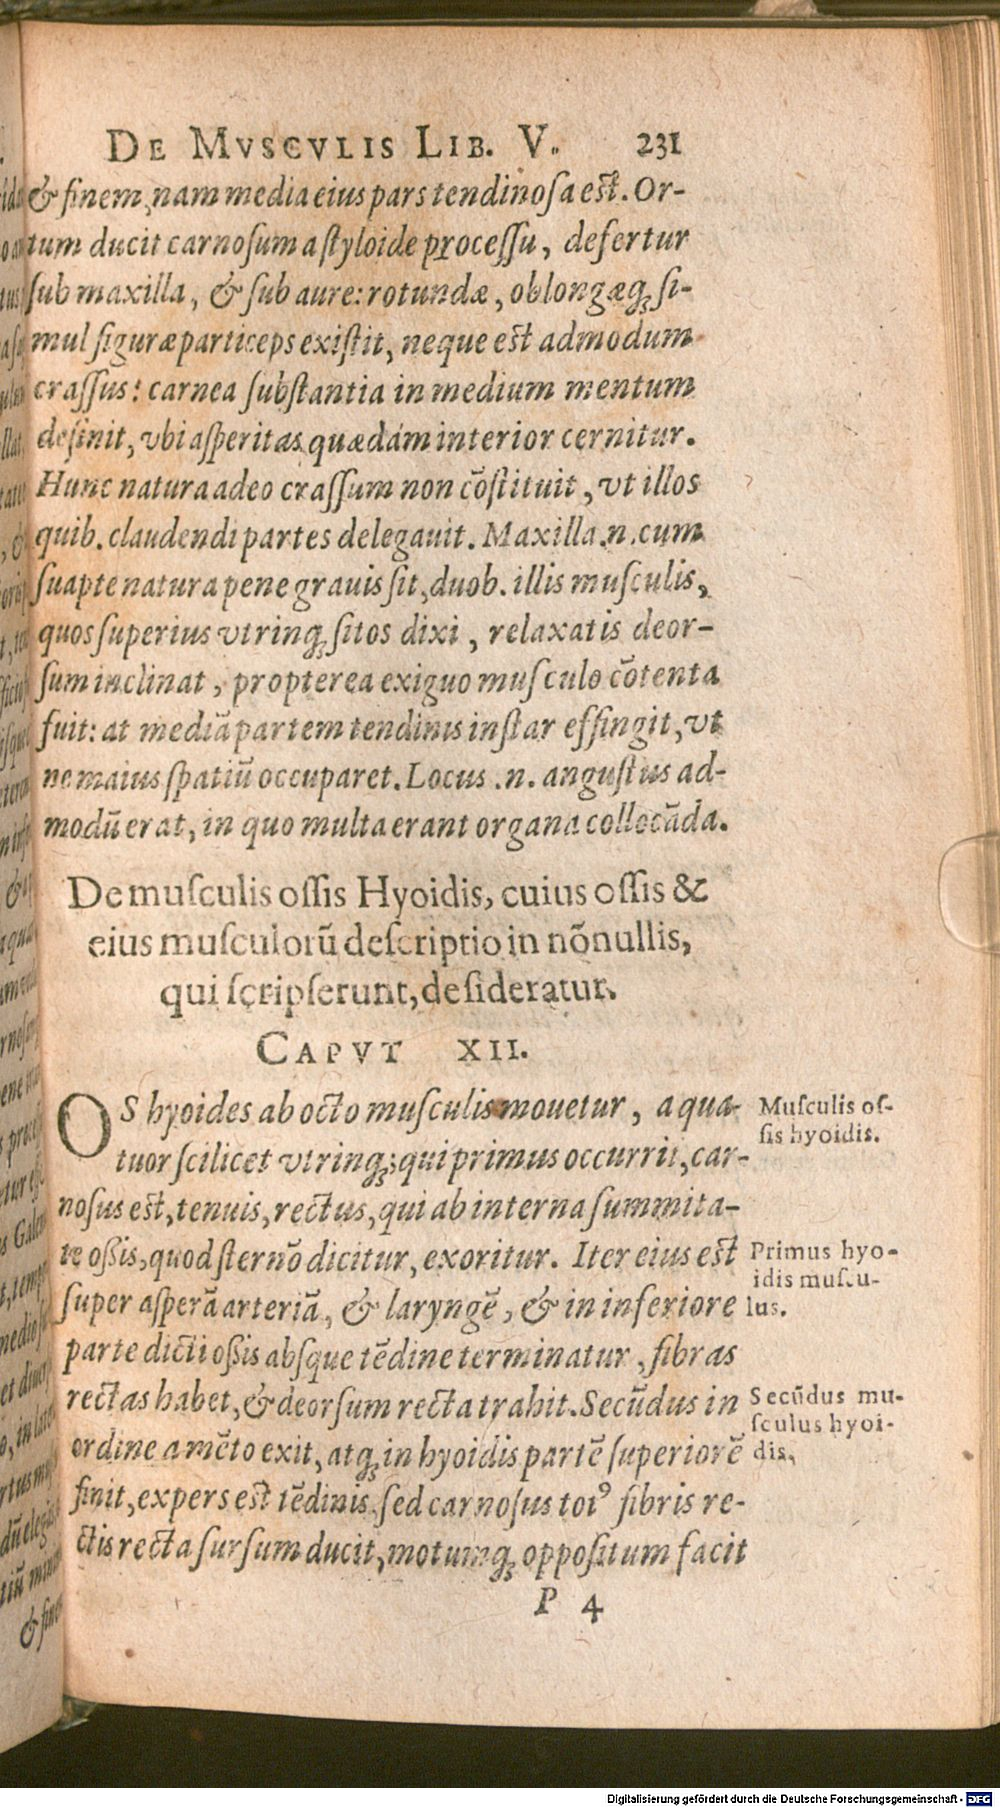 DE MVSCVLIS LIB. V. 231
& finem, nam media eius pars tendinosa est. Or-
tum ducit carnosum a styloide processu, defertur
sub maxilla, & sub aure: rotundæ, oblongæq; si-
mul figuræ particeps existit, neque est admodum
crassus: carnea substantia in medium mentum
desinit, vbi asperitas quædam interior cernitur.
Hunc natura adeo crassum non cōstituit, vt illos
quib. claudendi partes delegauit. Maxilla .n. cum
suapte natura pene grauis sit, duob. illis musculis,
quos superius vtrinq; sitos dixi, relaxatis deor-
sum inclinat, propterea exiguo musculo cōtenta
fuit: at mediā partem tendinis instar effingit, vt
ne maius spatiū occuparet. Locus .n. angustus ad-
modū erat, in quo multa erant organa collocāda.
De musculis ossis Hyoidis, cuius ossis &
eius musculorū descriptio in nōnullis,
qui scripserunt, desideratur.
CAPVT XII.
OS hyoides ab octo musculis mouetur, a qua-
tuor scilicet vtrinq; qui primus occurrit, car-
nosus est, tenuis, rectus, qui ab interna summita-
te ossis, quod sternō dicitur, exoritur. Iter eius est
super asperā arteriā, & laryngē, & in inferiore
parte dicti ossis absque tēdine terminatur, fibras
rectas habet, & deorsum recta trahit. Secūdus in
ordine a mēto exit, atq; in hyoidis partē superiorē
finit, expers est tēdinis, sed carnosus totꝰ fibris re-
ctis recta sursum ducit, motumq; oppositum facit
P 4
Musculis os-
sis hyoidis.
Primus hyo-
idis muscu-
lus.
Secūdus mu-
sculus hyoi-
dis.
Digitalisierung gefördert durch die Deutsche Forschungsgemeinschaft - DFG